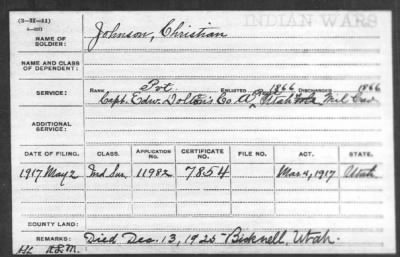 (3-III-II)
INDIAN WARS
NAME OF SOLDIER: Johnson, Christian
NAME AND CLASS OF DEPENDENT:
SERVICE: RANK Pvt. ENLISTED 1866 DISCHARGED 1866
Capt. Edw. Dolton's Co A, Utah Vols Mil Cav
ADDITIONAL SERVICE:
DATE OF FILING. CLASS. APPLICATION No. CERTIFICATE NO. FILE NO. ACT. STATE.
1917 May 2 Ind Sur. 11982 7854 Mar. 4, 1917 Utah
COUNTY LAND:
REMARKS: Died Dec. 13, 1925 - Bicknell, Utah.